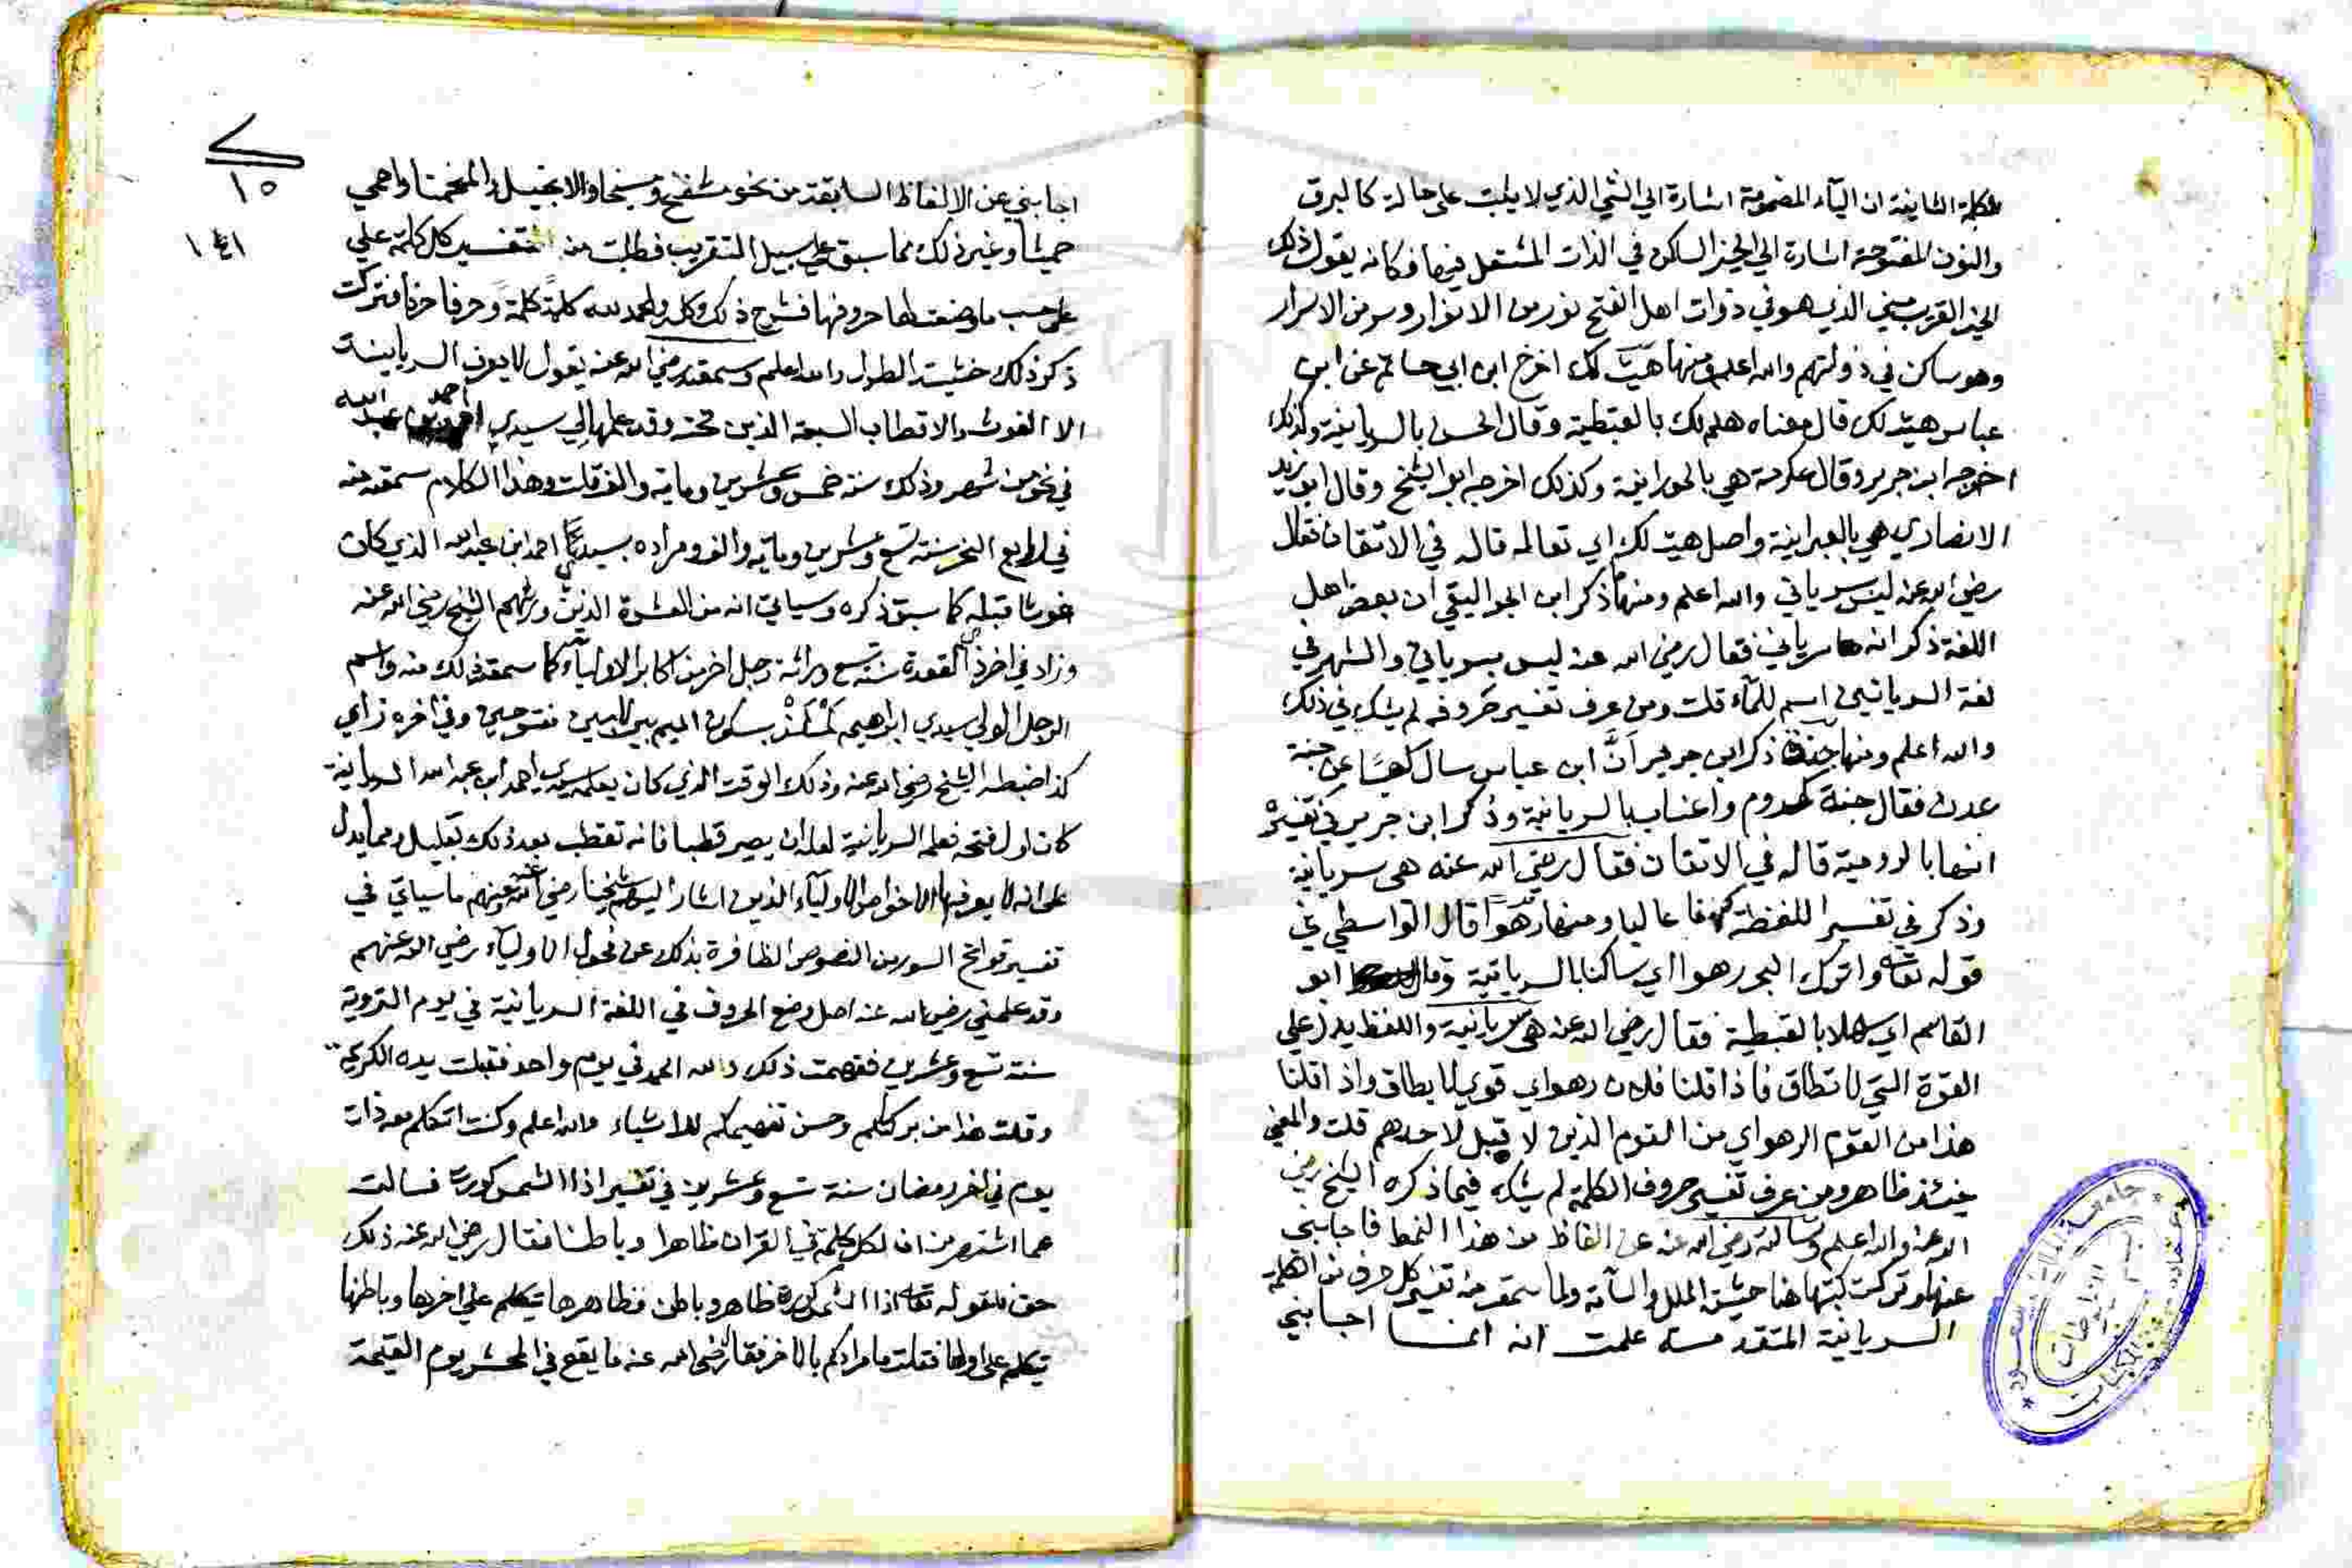 الكلمة الثانية ان الياء المضمومة اشارة الي الشي الذي لا يثبت علي حالة كالبرق
والنون المفتوحة اشارة الي الخير الساكن في الذات المشتعل فيها فكانه يقول ذلك
الخير القريب مني الذي هو في ذوات اهل الفتح نور من الانوار وسر من الاسرار
وهو ساكن في ذواتهم والله اعلم ومنها هيت لك اخرج ابن ابي حاتم عن ابن
عباس هيت لك قال معناه هلم لك بالقبطية وقال الحسن بالسريانية وكذلك
اخرجه ابن جرير وقال عكرمة هي بالحورانية وكذلك اخرجه ابو الشيخ وقال ابو زيد
الانصاري هي بالعبرانية واصل هيت لك اي تعالي قاله في الاتقان فقال
رضي الله عنه ليس سرياني والله اعلم ومنها ذكر ابن الجواليقي ان بعض اهل
اللغة ذكر انه سرياني فقال رضي الله عنه ليس بسرياني والشهر في
لغة السريانيين اسم للماء قلت ومن عرف تفسير حروفه لم يشك في ذلك
والله اعلم ومنها جنة ذكر ابن جرير انّ ابن عباس سال كعبا عن جنة
عدن فقال جنة كروم واعناب بالسريانية وذكر ابن جرير في تفسير
انها بالرومية قاله في الاتقان فقال رضي الله عنه هي سريانية
وذكر في تفسير اللفظة عاليا ومنها رهوا قال الواسطي في
قوله تعالى واترك البحر رهوا اي ساكنا بالسريانية وقال ابو
القاسم اي سهلا بالقبطية فقال رضي الله عنه هي سريانية واللفظ يدل علي
القوة التي لا تطاق فاذا قلنا فلان رهوا اي قوي لا يطاق واذا قلنا
هذا من القوم الرهو اي من القوم الذين لا قبل لاحد هم قلت والمعني
حينئذ ظاهر ومن عرف تفسير حروف الكلمة لم يشك فيما ذكره الشيخ رضي
الله عنه والله اعلم وسالته رضي الله عنه عن الفاظ من هذا النمط فاجابني
عنها وتركت كتبها هنا خشية الملل والسآمة ولما سمعت منه تفسير كل حرف من
السريانية المتقدمة علمت انه انما اجابني
١٥
١٤١
اجابني عن الالفاظ السابقة من نحو مشفح ومسيخا والانجيل والمنحمنا واهمي
حميثا وغير ذلك مما سبق علي سبيل التقريب فطلبت منه تفسير كل كلمة علي
علي حسب ما وضعت لها حروفها فشرح ذلك وكله والحمد لله كلمةً كلمةً وحرفا حرفا فتركت
ذكر ذلك خشية الطول والله اعلم وسمعته رضي الله عنه يقول لا يعرف السريانية
الا الغوث والاقطاب السبعة الذين تحته وقد علمها لي سيدي احمد بن عبد الله
في نحو من شهر وذلك سنة خمس وعشرين وماية والف قلت وهذا الكلام سمعته منه
في سنة تسع وعشرين وماية والف ومراده بسيدي احمد ابن عبد الله الذي كان
غوثا قبله كما سبق ذكره وسياتي انه من العشرة الذين ورثهم الشيخ رضي الله عنه
وزاد في اخر ذي القعدة سنة تسع رجل اخر من اكابر الاولياء كما سمعت ذلك منه واسم
الرجل الولي سيدي ابراهيم بسكون الميم بين لامين مفتوحين وفي اخره زاي
كذا ضبطه الشيخ رضي الله عنه وذلك الوقت الذي كان يعلمه سيدي احمد ابن عبد الله السريانية
كان اول فتحه فعلمه السريانية لعله ان يصير قطبا فانه تقطب بعد ذلك بقليل ومما يدل
علي انه لا يعرفها الا خواص الاولياء الذين اشار اليهم شيخنا رضي الله عنه وعنهم ما سياتي في
تفسير فواتح السور من النصوص الظافرة بذلك عن فحول الاولياء رضي الله عنهم
وقد علمني رضي الله عنه اصل وضع الحروف في اللغة السريانية في يوم التروية
سنة تسع وعشرين ففهمت ذلك ولله الحمد في يوم واحد فقبلت يده الكريمة
وقلت هذا من بركتكم وحسن تفهيمكم للاشياء والله اعلم وكنت اتكلم معه ذات
يوم في اخر رمضان سنة تسع وعشرين في تفسير اذا الشمس كورت فسالت
عما اشتهر من ان لكل كلمة في القران ظاهرا وباطنا فقال رضي الله عنه ذلك
حق فلقوله تعالى اذا الشمس كورت ظاهر وباطن فظاهرها يتكلم علي اخرها وباطنها
يتكلم علي اولها فقلت ما مرادكم بالاخر فقال رضي الله عنه ما يقع في المحشر يوم القيمة